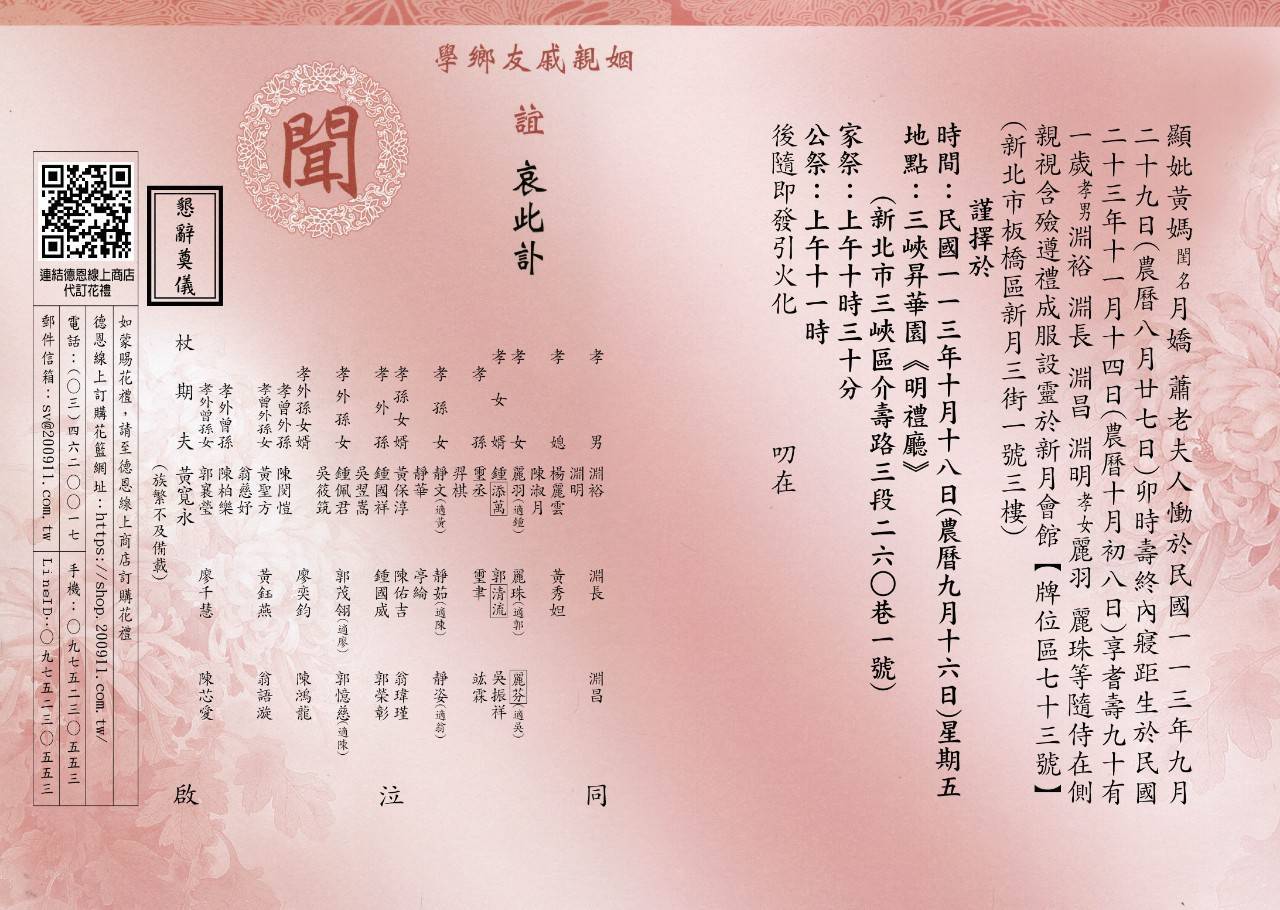 顯妣黃媽閨名月嬌　蕭老夫人慟於民國一一三年九月
二十九日(農曆八月廿七日)卯時壽終內寢距生於民國
二十三年十一月十四日(農曆十月初八日)享耆壽九十有
一歲孝男淵裕　淵長　淵昌　淵明孝女麗羽　麗珠等隨侍在側
親視含殮遵禮成服設靈於新月會館【牌位區七十三號】
(新北市板橋區新月三街一號三樓)
謹擇於
時間：民國一一三年十月十八日(農曆九月十六日)星期五
地點：三峽昇華園《明禮廳》
(新北市三峽區介壽路三段二六〇巷一號)
家祭：上午十時三十分
公祭：上午十一時
後隨即發引火化　叨在
學鄉友戚親姻
誼　哀此訃
聞
孝男　淵裕　淵長　淵昌　同
淵明
孝媳　楊麗雲　黃秀妲
陳淑月
孝女　麗羽(適鍾)　麗珠(適郭)　麗芬(適吳)
孝女婿　鍾添萬　郭清流　吳振祥
孝孫　璽丞　璽聿　竑霖
羿棋
孝孫女　靜文(適黃)　靜茹(適陳)　靜姿(適翁)
靜華　亭綸
孝孫女婿　黃保淳　陳佑吉　翁瑋瑾
孝外孫　鍾國祥　鍾國威　郭榮彰　泣
吳昱嵩
孝外孫女　鍾佩君　郭茂翎(適廖)　郭憶慈(適陳)
吳筱筑
孝外孫女婿　廖奕鈞　陳鴻龍
孝曾外孫　陳閔愷
孝曾外孫女　黃聖方　黃鈺燕　翁語漩
翁慈妤
孝外曾孫　陳柏樂
孝外曾孫女　郭襄瑩　廖千慧　陳芯愛
杖期夫　黃寬永　啟
(族繁不及備載)
懇辭奠儀
連結德恩線上商店
代訂花禮
如蒙賜花禮，請至德恩線上商店訂購花禮
德恩線上訂購花籃網址：https://shop.200911.com.tw/
電話：(〇三)四六二〇〇一七　手機：〇九七五二三〇五五三
郵件信箱：sv@200911.com.tw　LineID：〇九七五二三〇五五三